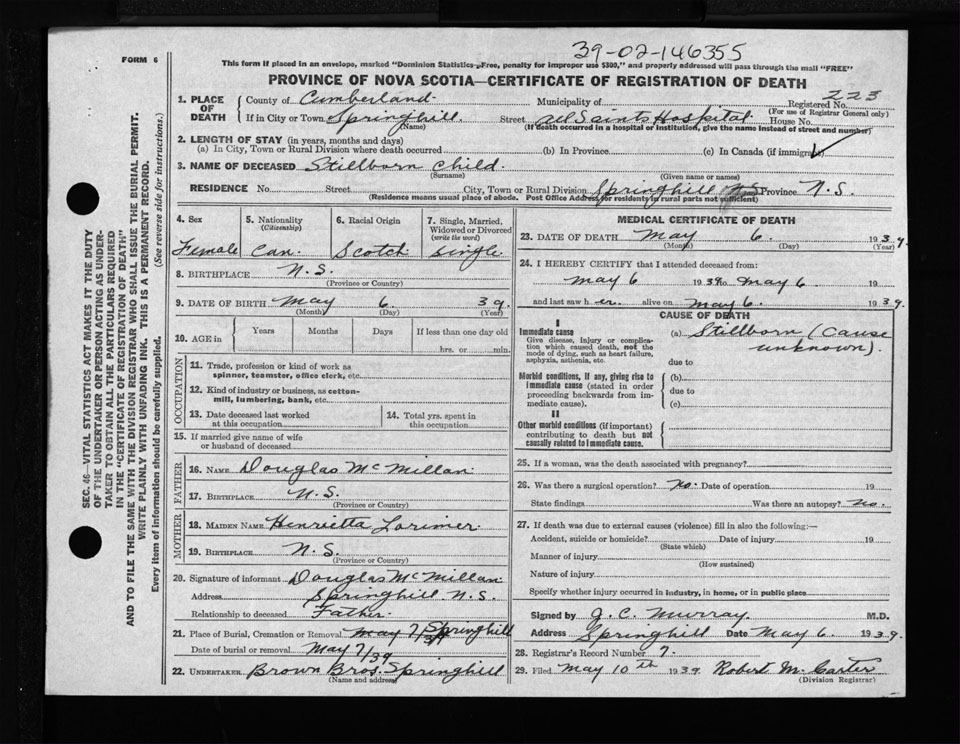 39-02-146355
FORM 6
This form if placed in an envelope, marked "Dominion Statistics-Free, penalty for improper use $300," and properly addressed will pass through the mail "FREE"
PROVINCE OF NOVA SCOTIA—CERTIFICATE OF REGISTRATION OF DEATH
223
1. PLACE OF DEATH
County of Cumberland Municipality of Registered No.
(For use of Registrar General only)
If in City or Town Springhill Street All Saints Hospital House No.
(Name) (If death occurred in a hospital or institution, give the name instead of street and number)
2. LENGTH OF STAY (in years, months and days)
(a) In City, Town or Rural Division where death occurred (b) In Province (c) In Canada (if immigrant)
3. NAME OF DECEASED Stillborn Child
(Surname) (Given name or names)
RESIDENCE No. Street City, Town or Rural Division Springhill N.S. Province N.S.
(Residence means usual place of abode. Post Office Address for residents in rural parts not sufficient)
4. Sex Female
5. Nationality (Citizenship) Can.
6. Racial Origin Scotch
7. Single, Married, Widowed or Divorced (write the word) Single
8. BIRTHPLACE N.S.
(Province or Country)
9. DATE OF BIRTH May 6 39
(Month) (Day) (Year)
10. AGE in Years Months Days If less than one day old
hrs. or min.
OCCUPATION
11. Trade, profession or kind of work as
spinner, teamster, office clerk, etc.
12. Kind of industry or business, as cotton-
mill, lumbering, bank, etc.
13. Date deceased last worked
at this occupation
14. Total yrs. spent in
this occupation
15. If married give name of wife
or husband of deceased
FATHER
16. NAME Douglas McMillan
17. BIRTHPLACE N.S.
(Province or Country)
MOTHER
18. MAIDEN NAME Henrietta Lorimer
19. BIRTHPLACE N.S.
(Province or Country)
20. Signature of informant Douglas McMillan
Address Springhill N.S.
Relationship to deceased Father
21. Place of Burial, Cremation or Removal May 7/39 Springhill
Date of burial or removal May 7/39
22. UNDERTAKER Brown Bros. Springhill
(Name and address)
MEDICAL CERTIFICATE OF DEATH
23. DATE OF DEATH May 6. 1939.
(Month) (Day) (Year)
24. I HEREBY CERTIFY that I attended deceased from:
May 6 1939 to May 6 19
and last saw her alive on May 6. 1939.
CAUSE OF DEATH
I
Immediate cause
Give disease, injury or complica-
tion which caused death, not the
mode of dying, such as heart failure,
asphyxia, asthenia, etc.
(a) Stillborn (Cause
unknown).
due to
Morbid conditions, if any, giving rise to
immediate cause (stated in order
proceeding backwards from im-
mediate cause).
(b)
due to
(c)
II
Other morbid conditions (if important)
contributing to death but not
causally related to immediate cause.
25. If a woman, was the death associated with pregnancy?
26. Was there a surgical operation? No. Date of operation 19
State findings Was there an autopsy? No.
27. If death was due to external causes (violence) fill in also the following:—
Accident, suicide or homicide? Date of injury 19
(State which)
Manner of injury
(How sustained)
Nature of injury
Specify whether injury occurred in industry, in home, or in public place
Signed by J. C. Murray. M.D.
Address Springhill Date May 6. 1939.
28. Registrar's Record Number 7.
29. Filed May 10th 1939 Robert M. Carter
(Division Registrar)
SEC. 46—VITAL STATISTICS ACT MAKES IT THE DUTY
OF THE UNDERTAKER OR PERSON ACTING AS UNDER-
TAKER TO OBTAIN ALL THE PARTICULARS REQUIRED
IN THE "CERTIFICATE OF REGISTRATION OF DEATH"
AND TO FILE THE SAME WITH THE DIVISION REGISTRAR WHO SHALL ISSUE THE BURIAL PERMIT.
WRITE PLAINLY WITH UNFADING INK. THIS IS A PERMANENT RECORD.
Every item of information should be carefully supplied. (See reverse side for instructions.)